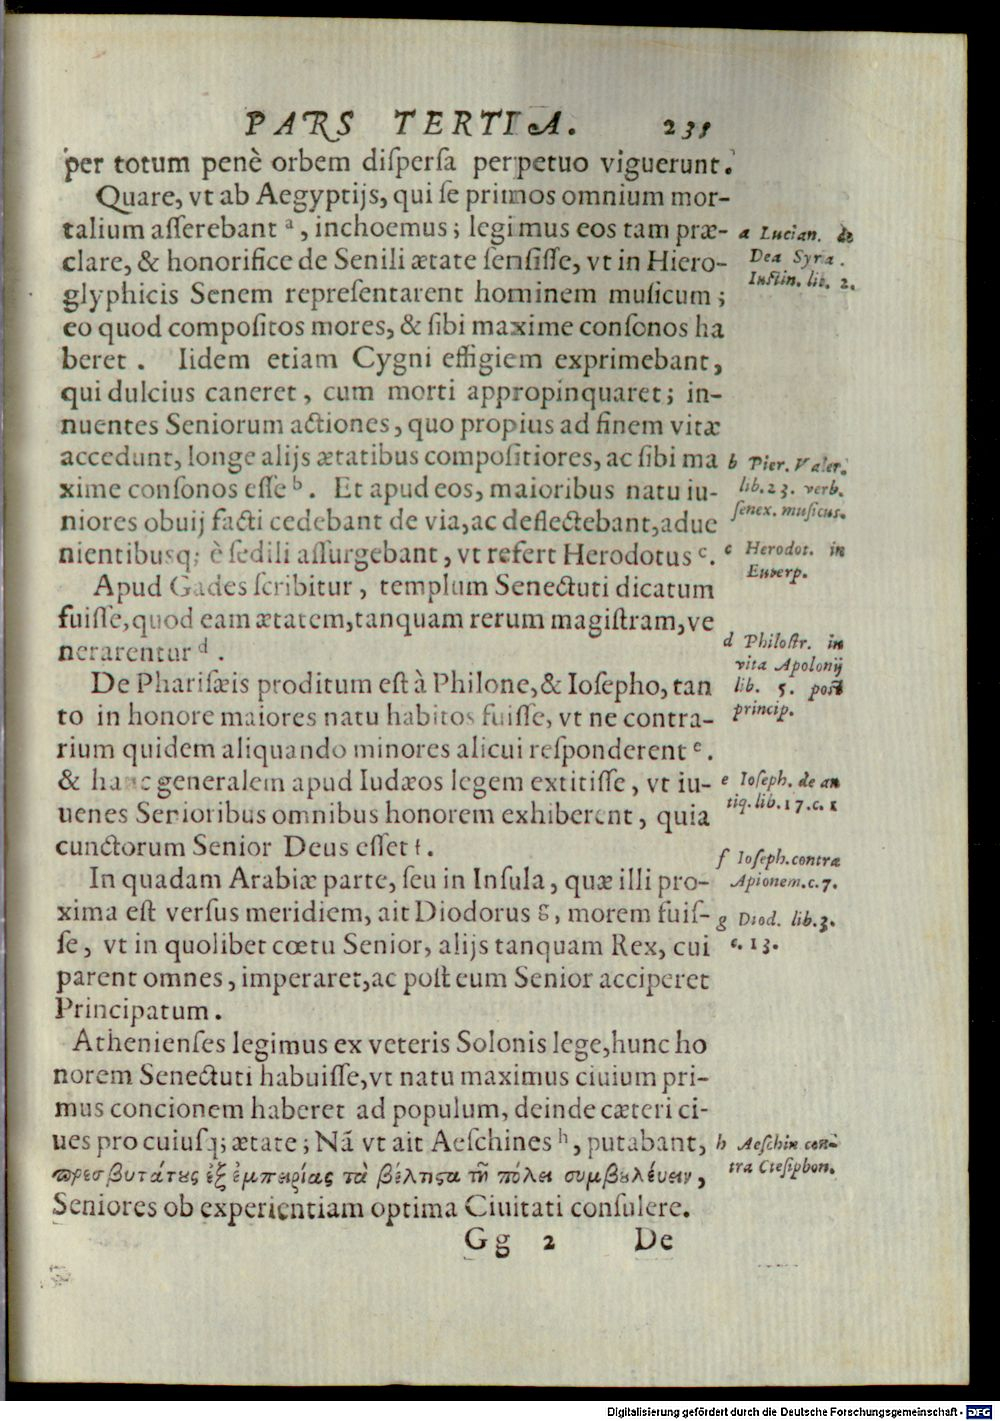 PARS TERTIA. 235
per totum penè orbem diſperſa perpetuo viguerunt.
Quare, vt ab Aegyptijs, qui ſe primos omnium mor-
talium aſſerebant ᵃ, inchoemus; legimus eos tam præ-
clare, & honorifice de Senili ætate ſenſiſſe, vt in Hiero-
glyphicis Senem repreſentarent hominem muſicum;
eo quod compoſitos mores, & ſibi maxime conſonos ha
beret. Iidem etiam Cygni effigiem exprimebant,
qui dulcius caneret, cum morti appropinquaret; in-
nuentes Seniorum actiones, quo propius ad finem vitæ
accedunt, longe alijs ætatibus compoſitiores, ac ſibi ma
xime conſonos eſſe ᵇ. Et apud eos, maioribus natu iu-
niores obuij facti cedebant de via, ac deflectebant, adue
nientibusq; è ſedili aſſurgebant, vt refert Herodotus ᶜ.
Apud Gades ſcribitur, templum Senectuti dicatum
fuiſſe, quod eam ætatem, tanquam rerum magiſtram, ve
nerarentur ᵈ.
De Phariſæis proditum eſt à Philone, & Ioſepho, tan
to in honore maiores natu habitos fuiſſe, vt ne contra-
rium quidem aliquando minores alicui reſponderent ᵉ.
& hanc generalem apud Iudæos legem extitiſſe, vt iu-
uenes Senioribus omnibus honorem exhiberent, quia
cunctorum Senior Deus eſſet f.
In quadam Arabiæ parte, ſeu in Inſula, quæ illi pro-
xima eſt verſus meridiem, ait Diodorus g, morem fuiſ-
ſe, vt in quolibet cœtu Senior, alijs tanquam Rex, cui
parent omnes, imperaret, ac poſt eum Senior acciperet
Principatum.
Athenienſes legimus ex veteris Solonis lege, hunc ho
norem Senectuti habuiſſe, vt natu maximus ciuium pri-
mus concionem haberet ad populum, deinde cæteri ci-
ues pro cuiuſq; ætate; Nã vt ait Aeſchines ʰ, putabant,
πρεσβυτάτους ἐξ ἐμπειρίας τὰ βέλτιστα τῇ πόλει συμβουλέυειν,
Seniores ob experientiam optima Ciuitati conſulere.
Gg 2 De
a Lucian. de
Dea Syra.
Iuſtin. lib. 2.
b Pier. Valer.
lib. 23. verb.
ſenex. muſicus.
c Herodot. in
Euterp.
d Philoſtr. in
vita Apolonij
lib. 5. poſt
princip.
e Ioſeph. de an
tiq. lib. 17. c. 1
f Ioſeph. contra
Apionem. c. 7.
g Diod. lib. 3.
c. 13.
h Aeſchin con-
tra Cteſiphon.
Digitalisierung gefördert durch die Deutsche Forschungsgemeinschaft - DFG